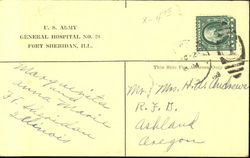 U. S. ARMY
GENERAL HOSPITAL NO. 28
FORT SHERIDAN, ILL.
This Side For Address Only
Marguerite
and
Anna Marie
Ft. Sheridan
Illinois
Mr. & Mrs. H. A. Andrews
R. F. D.
Ashland
Oregon